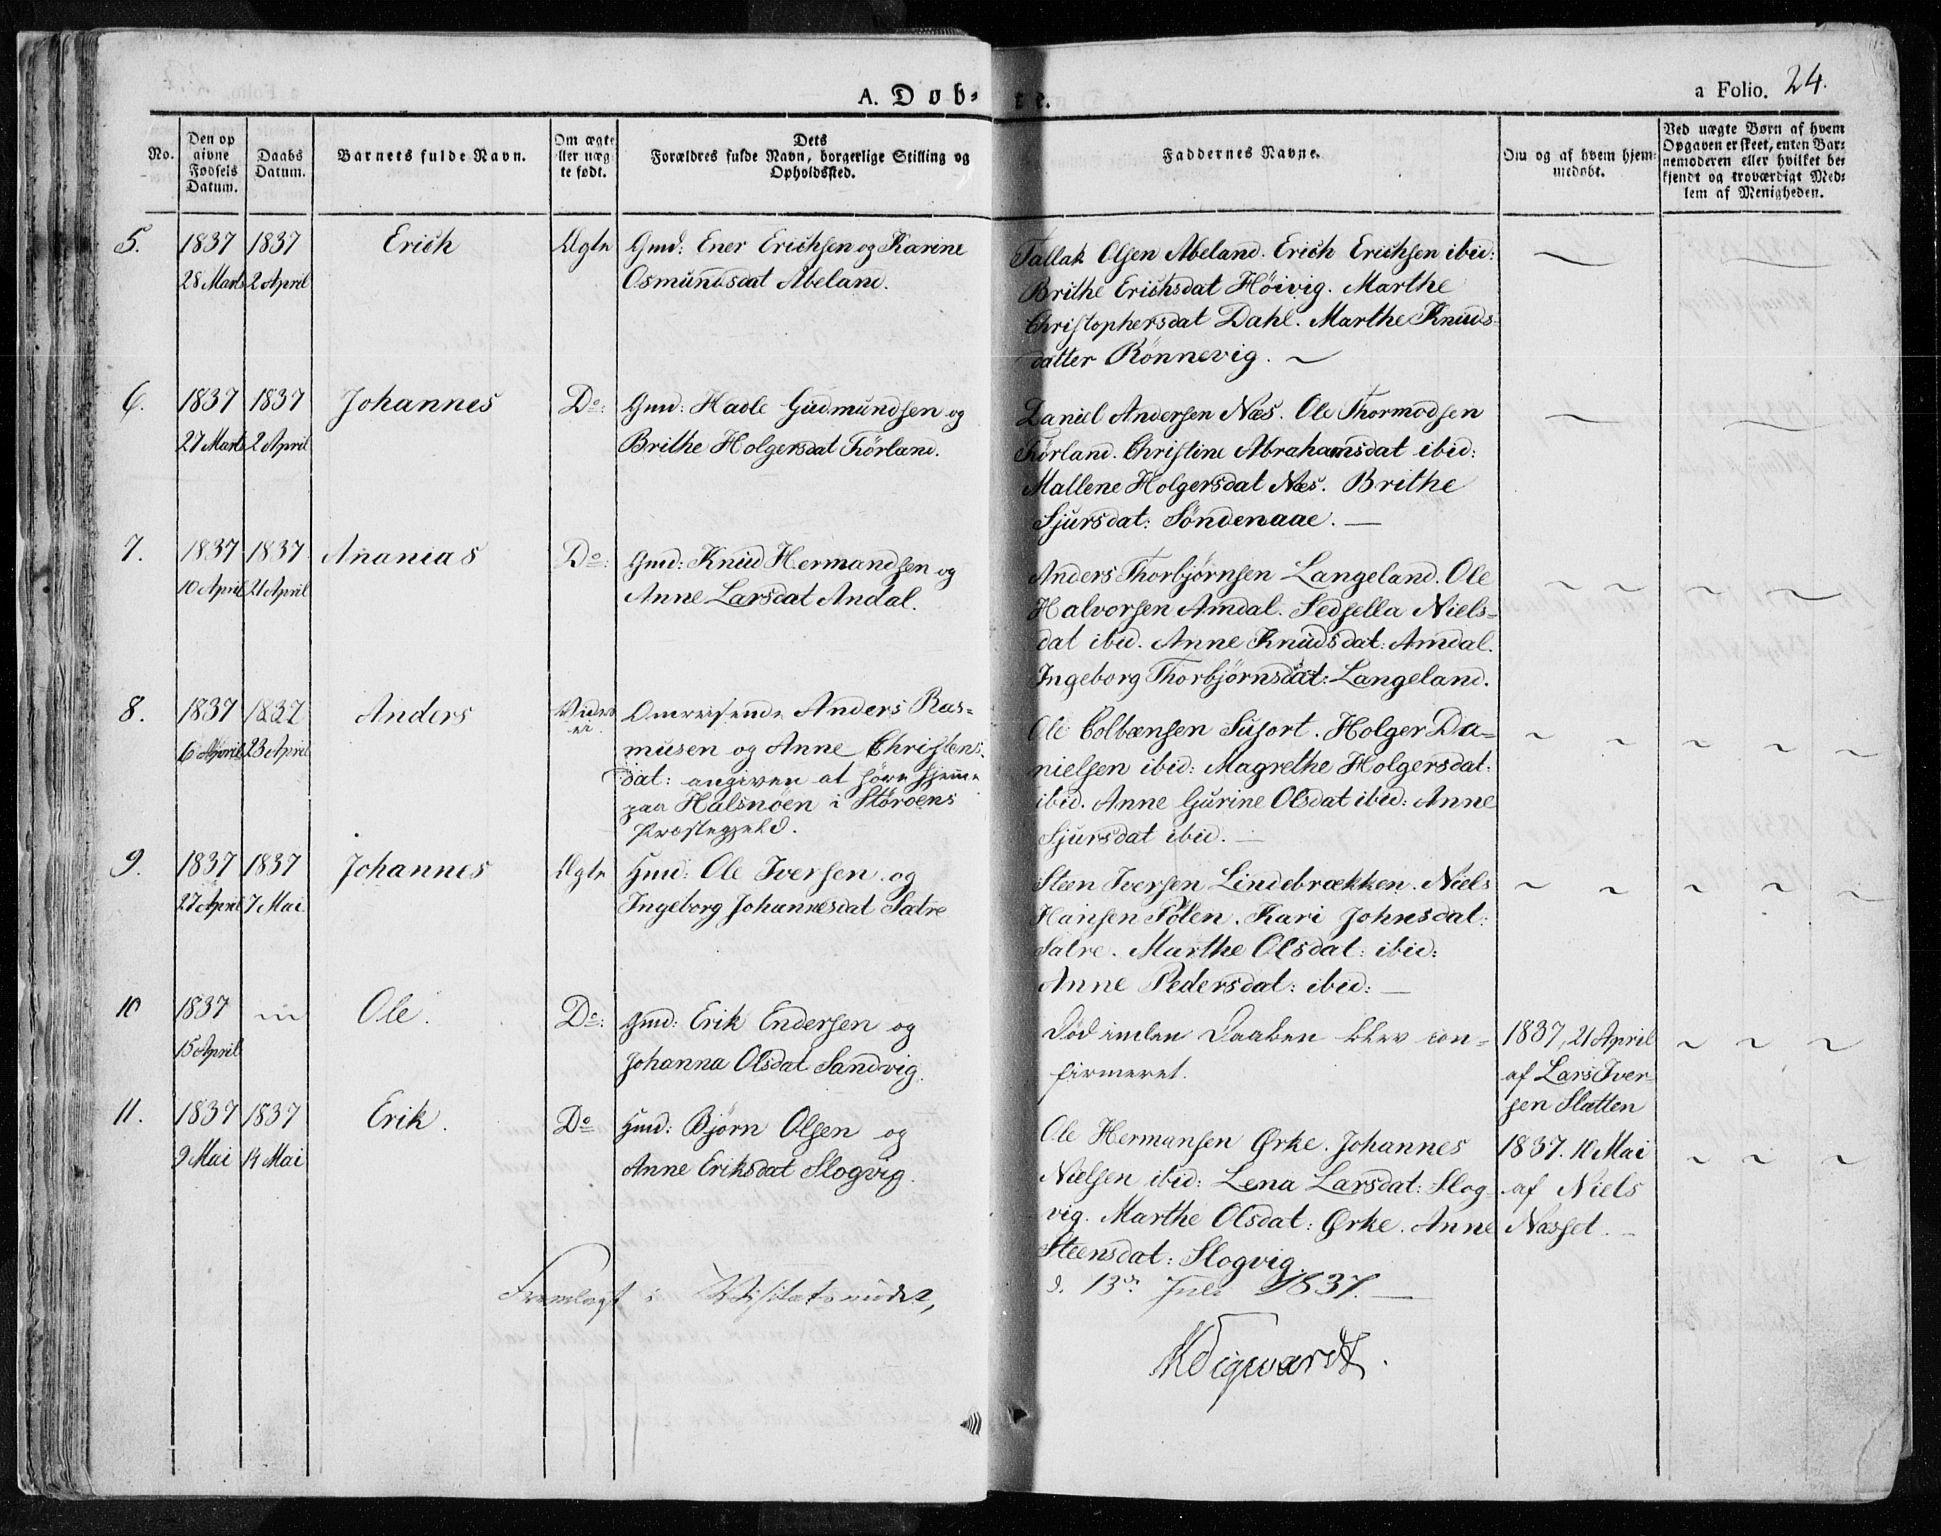 A. Døb-te.
a Folio. 24.
No.
Den op
givne
Fødsels
Datum.
Daabs
Datum.
Barnets fulde Navn.
Om ægte
eller uæg-
te født.
Dets
Forældres fulde Navn, borgerlige Stilling og
Opholdssted.
Faddernes Navne.
Om og af hvem hjem-
medøbt.
Ved uægte Børn af hvem
Opgaven er skeet, enten Bar-
nemoderen eller hvilket be-
kjendt og troværdigt Med-
lem af Menigheden.
5.
1837
28 Marts
1837
2 April
Erich
Ægte
Gmd: Ener Erichsen og Karine
Osmundsdat Abeland.
Tallak Olsen Abeland. Erich Erichsen ibid:
Brithe Erichsdat Höivig. Marthe
Christophersdat Dahl. Marthe Knuds-
datter Rönnevig.
6.
1837
27 Marts
1837
2 April
Johannes
Do:
Gmd: Hadle Gudmundsen og
Brithe Holgersdat Förland.
Daniel Andersen Næs. Ole Thormodsen
Förland. Christine Abrahamsdat ibid:
Mallene Holgersdat Næs. Brithe
Sjursdat: Söndenaae.
7.
1837
10 April
1837
21 April
Ananias
Do:
Gmd: Knud Hermandsen og
Anne Larsdat Amdal.
Anders Thorbjørnsen Langeland. Ole
Halvorsen Amdal. Sedsella Niels-
dat ibid. Anne Knudsdat: Amdal.
Ingeborg Thorbjørnsdat: Langeland.
8.
1837
6 April
1837
23 April
Anders
Omreisende Anders Ras-
musen og Anne Christens-
dat: angiven at høre hjemme
paa Halsnöen i Störöens
Præstegjeld.
Ole Colbænsen Susort. Holger Da-
nielsen ibid: Magrethe Holgersdat:
ibid. Anne Gurine Olsdat ibid: Anne
Sjursdat ibid.
9.
1837
27 April
1837
7 Mai
Johannes
Ægte
Gmd: Ole Iversen og
Ingeborg Johannesdat Satre
Steen Iversen Lindebrækken. Niels
Hansen Tölen. Kari Johnsdat:
Satre. Marthe Olsdat: ibid:
Anne Pedersdat: ibid:
10
1837
15 April
Ole.
Do:
Gmd: Erik Endersen og
Johanna Olsdat Sandvig.
Död inden Daaben blev con-
firmeret.
1837, 21 April
af Lars Iver-
sen Slatten
11.
1837
9 Mai
1837
14 Mai
Erik.
Do
Gmd: Bjørn Olsen og
Anne Eriksdat Slogvig.
Ole Hermansen Ørke. Johannes
Nielsen ibid: Lena Larsdat: Slog-
vig. Marthe Olsdat: Ørke. Anne
Steensdat: Slogvig.
1837. 10 Mai
af Niels
Næsset.
Fremlagt i Visitatsmødet,
d. 13de Juli 1837.